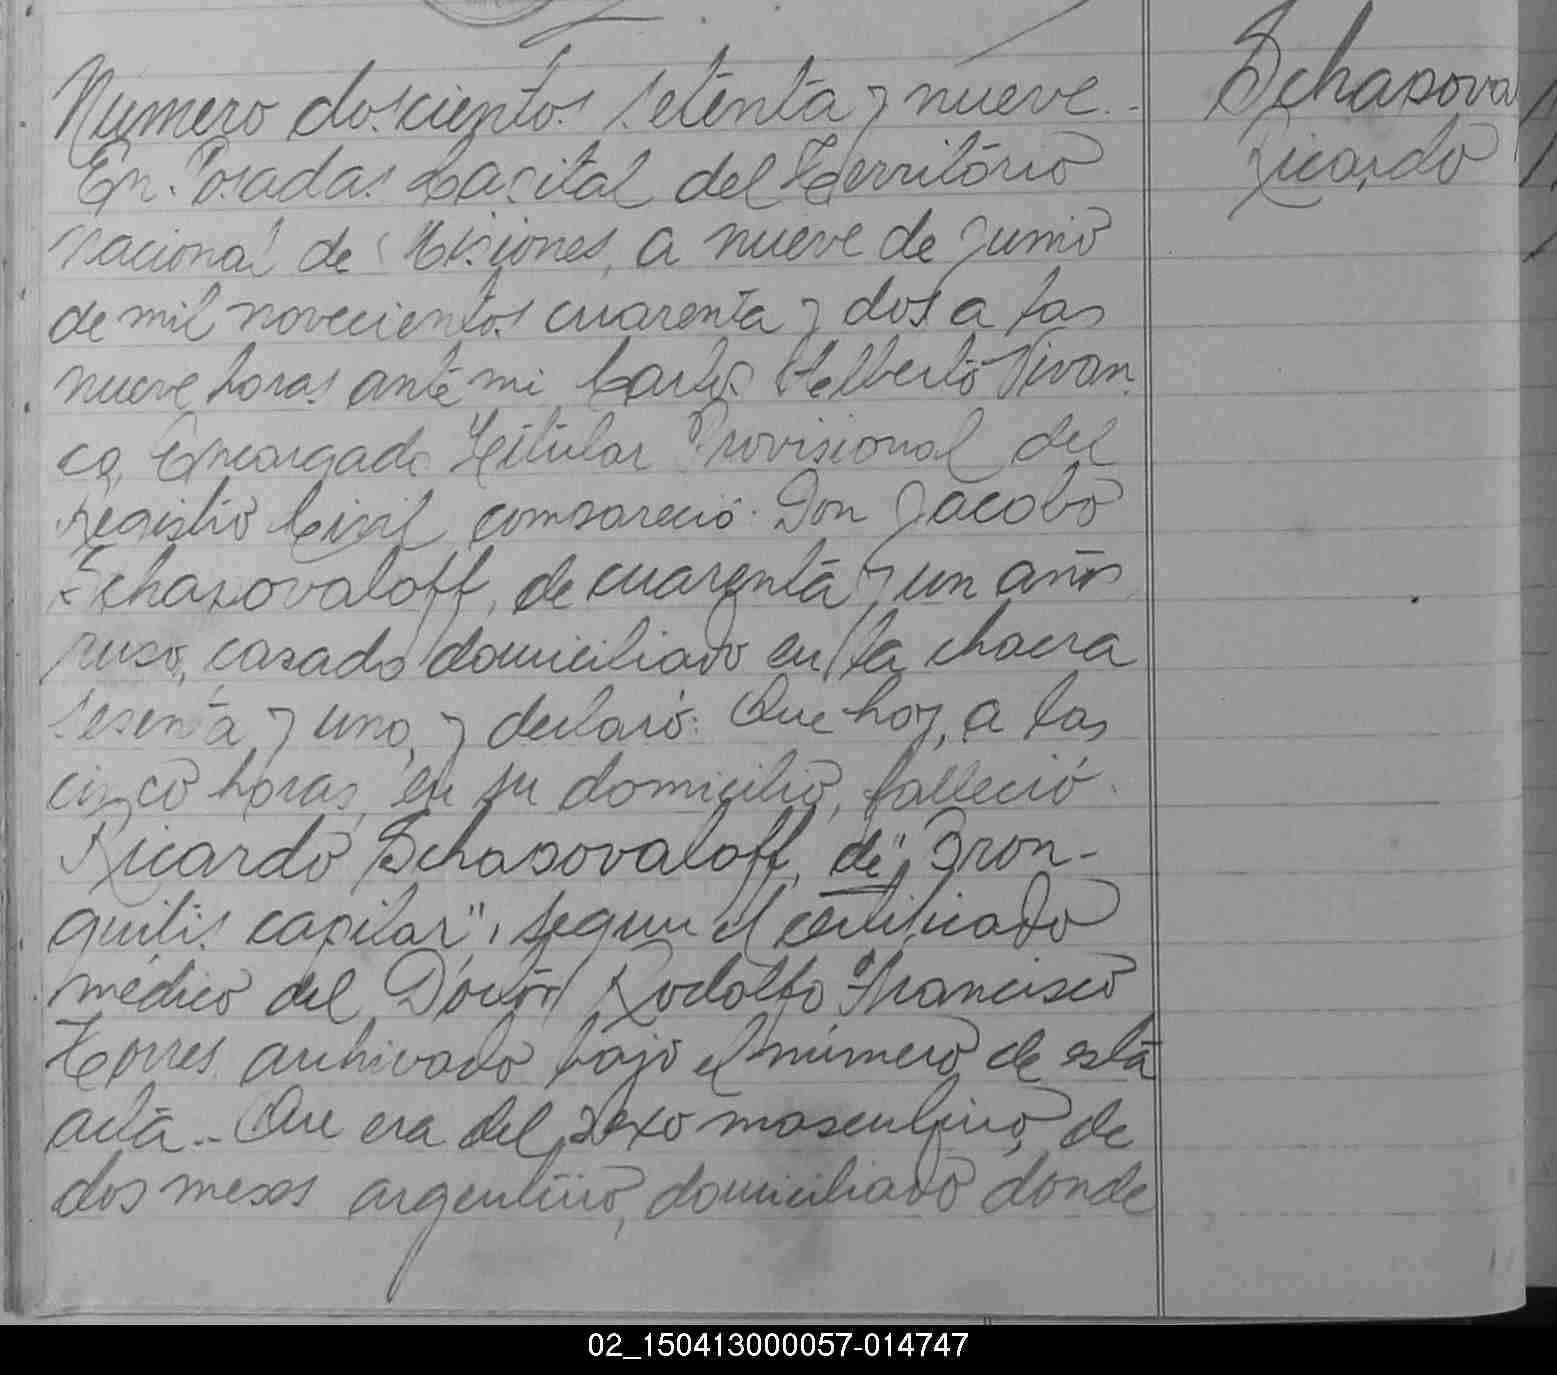 Numero doscientos setenta y nueve.-
En Posadas Capital del Territorio
nacional de Misiones, a nueve de junio
de mil novecientos cuarenta y dos a las
nueve horas ante mi Carlos Helberto Vivan
co, Encargado Titular Provisional del
Registro Civil compareció: Don Jacobo
Schapovaloff, de cuarenta y un años
ruso, casado domiciliado en la chacra
sesenta y uno, y declaró: Que hoy, a las
cinco horas, en su domicilio, falleció
Ricardo Schapovaloff, de "Bron-
quitis capilar", segun el certificado
médico del Doctor Rodolfo Francisco
Torres archivado bajo el número de esta
acta.- Que era del sexo masculino, de
dos meses argentino, domiciliado donde
Schapova
Ricardo
02_150413000057-014747